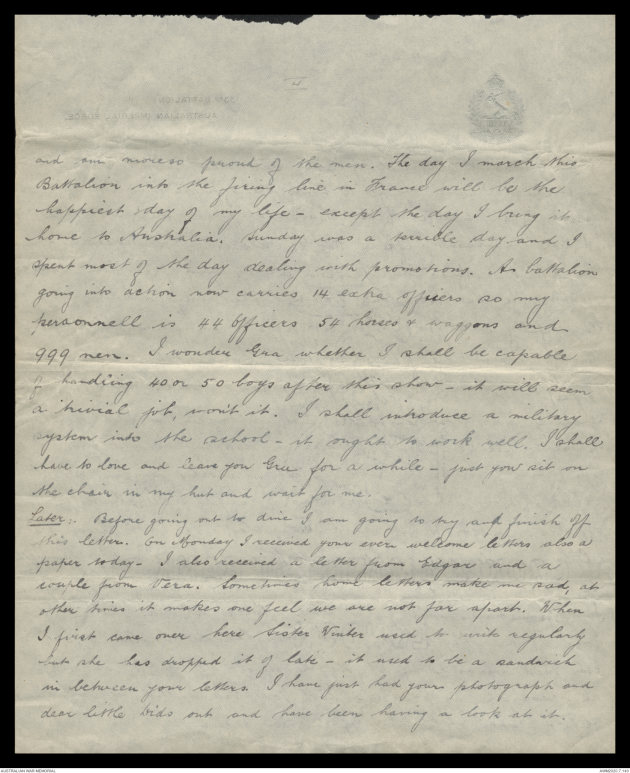 4
33RD BATTALION
AUSTRALIAN IMPERIAL FORCE.
and am more so proud of the men. The day I march this
Battalion into the firing line in France will be the
happiest day of my life – except the day I bring it
home to Australia. Sunday was a terrible day and I
spent most of the day dealing with promotions. A battalion
going into action now carries 14 extra officers so my
personnell is 44 officers 54 horses & waggons and
999 men. I wonder Gra whether I shall be capable
of handling 40 or 50 boys after this show – it will seem
a trivial job, won't it. I shall introduce a military
system into the school – it ought to work well. I shall
have to love and leave you Gra for a while – just you sit on
the chair in my hut and wait for me.
Later:. Before going out to dine I am going to try and finish off
this letter. On Monday I received your ever welcome letters also a
paper today – I also received a letter from Edgar and a
couple from Vera. Sometimes home letters make me sad, at
other times it makes one feel we are not far apart. When
I first came over here Sister Winter used to write regularly
but she has dropped it of late – it used to be a sandwich
in between your letters. I have just had your photograph and
dear little Wids out and have been having a look at it.
AUSTRALIAN WAR MEMORIAL